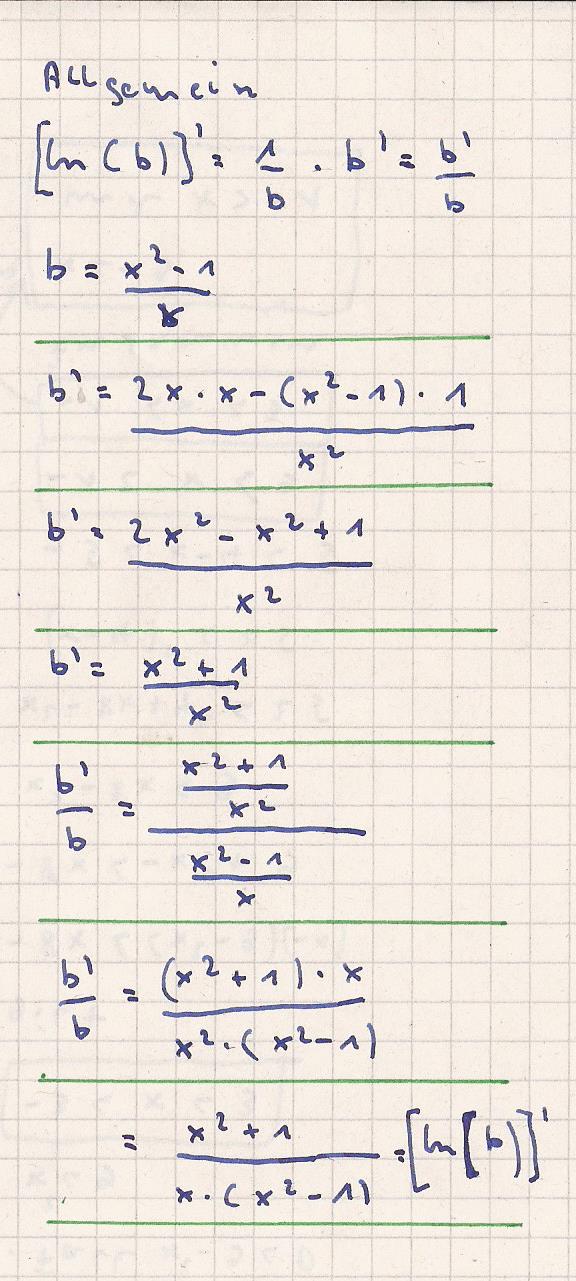 Allgemein
[ln(b)]' = 1/b · b' = b'/b
b = (x² - 1)/x
b' = (2x · x - (x² - 1) · 1)/x²
b' = (2x² - x² + 1)/x²
b' = (x² + 1)/x²
b'/b = ((x² + 1)/x²)/((x² - 1)/x)
b'/b = ((x² + 1) · x)/(x² · (x² - 1))
= (x² + 1)/(x · (x² - 1)) = [ln[b)]'